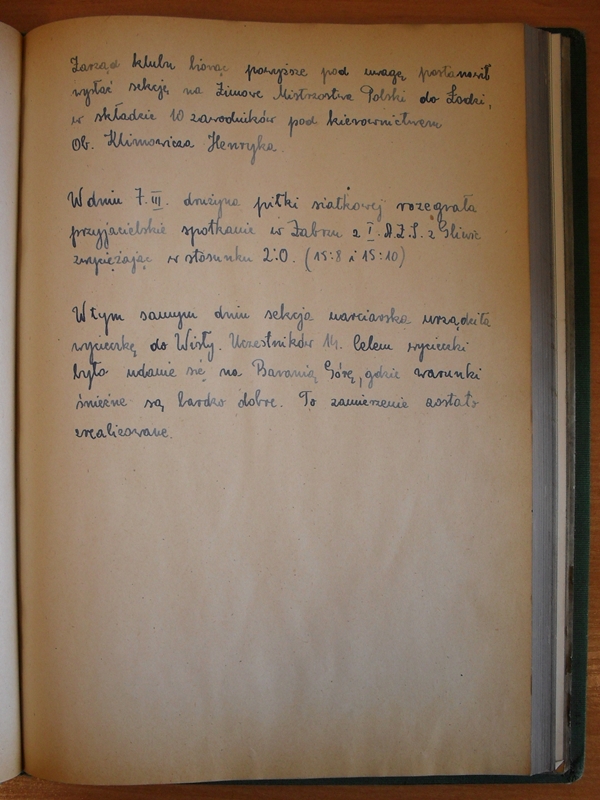 Zarząd klubu biorąc powyższe pod uwagę postanowił
wysłać sekcję na Zimowe Mistrzostwa Polski do Łodzi,
w składzie 10 zawodników pod kierownictwem
Ob. Klimowicza Henryka.
W dniu 7.III. drużyna piłki siatkowej rozegrała
przyjacielskie spotkanie w Zabrzu z I. A.Z.S. z Gliwic
zwyciężając w stosunku 2:0. (15:8 i 15:10)
W tym samym dniu sekcja narciarska urządziła
wycieczkę do Wisły. Uczestników 14. Celem wycieczki
było udanie się na Baranią Górę, gdzie warunki
śnieżne są bardzo dobre. To zamierzenie zostało
zrealizowane.